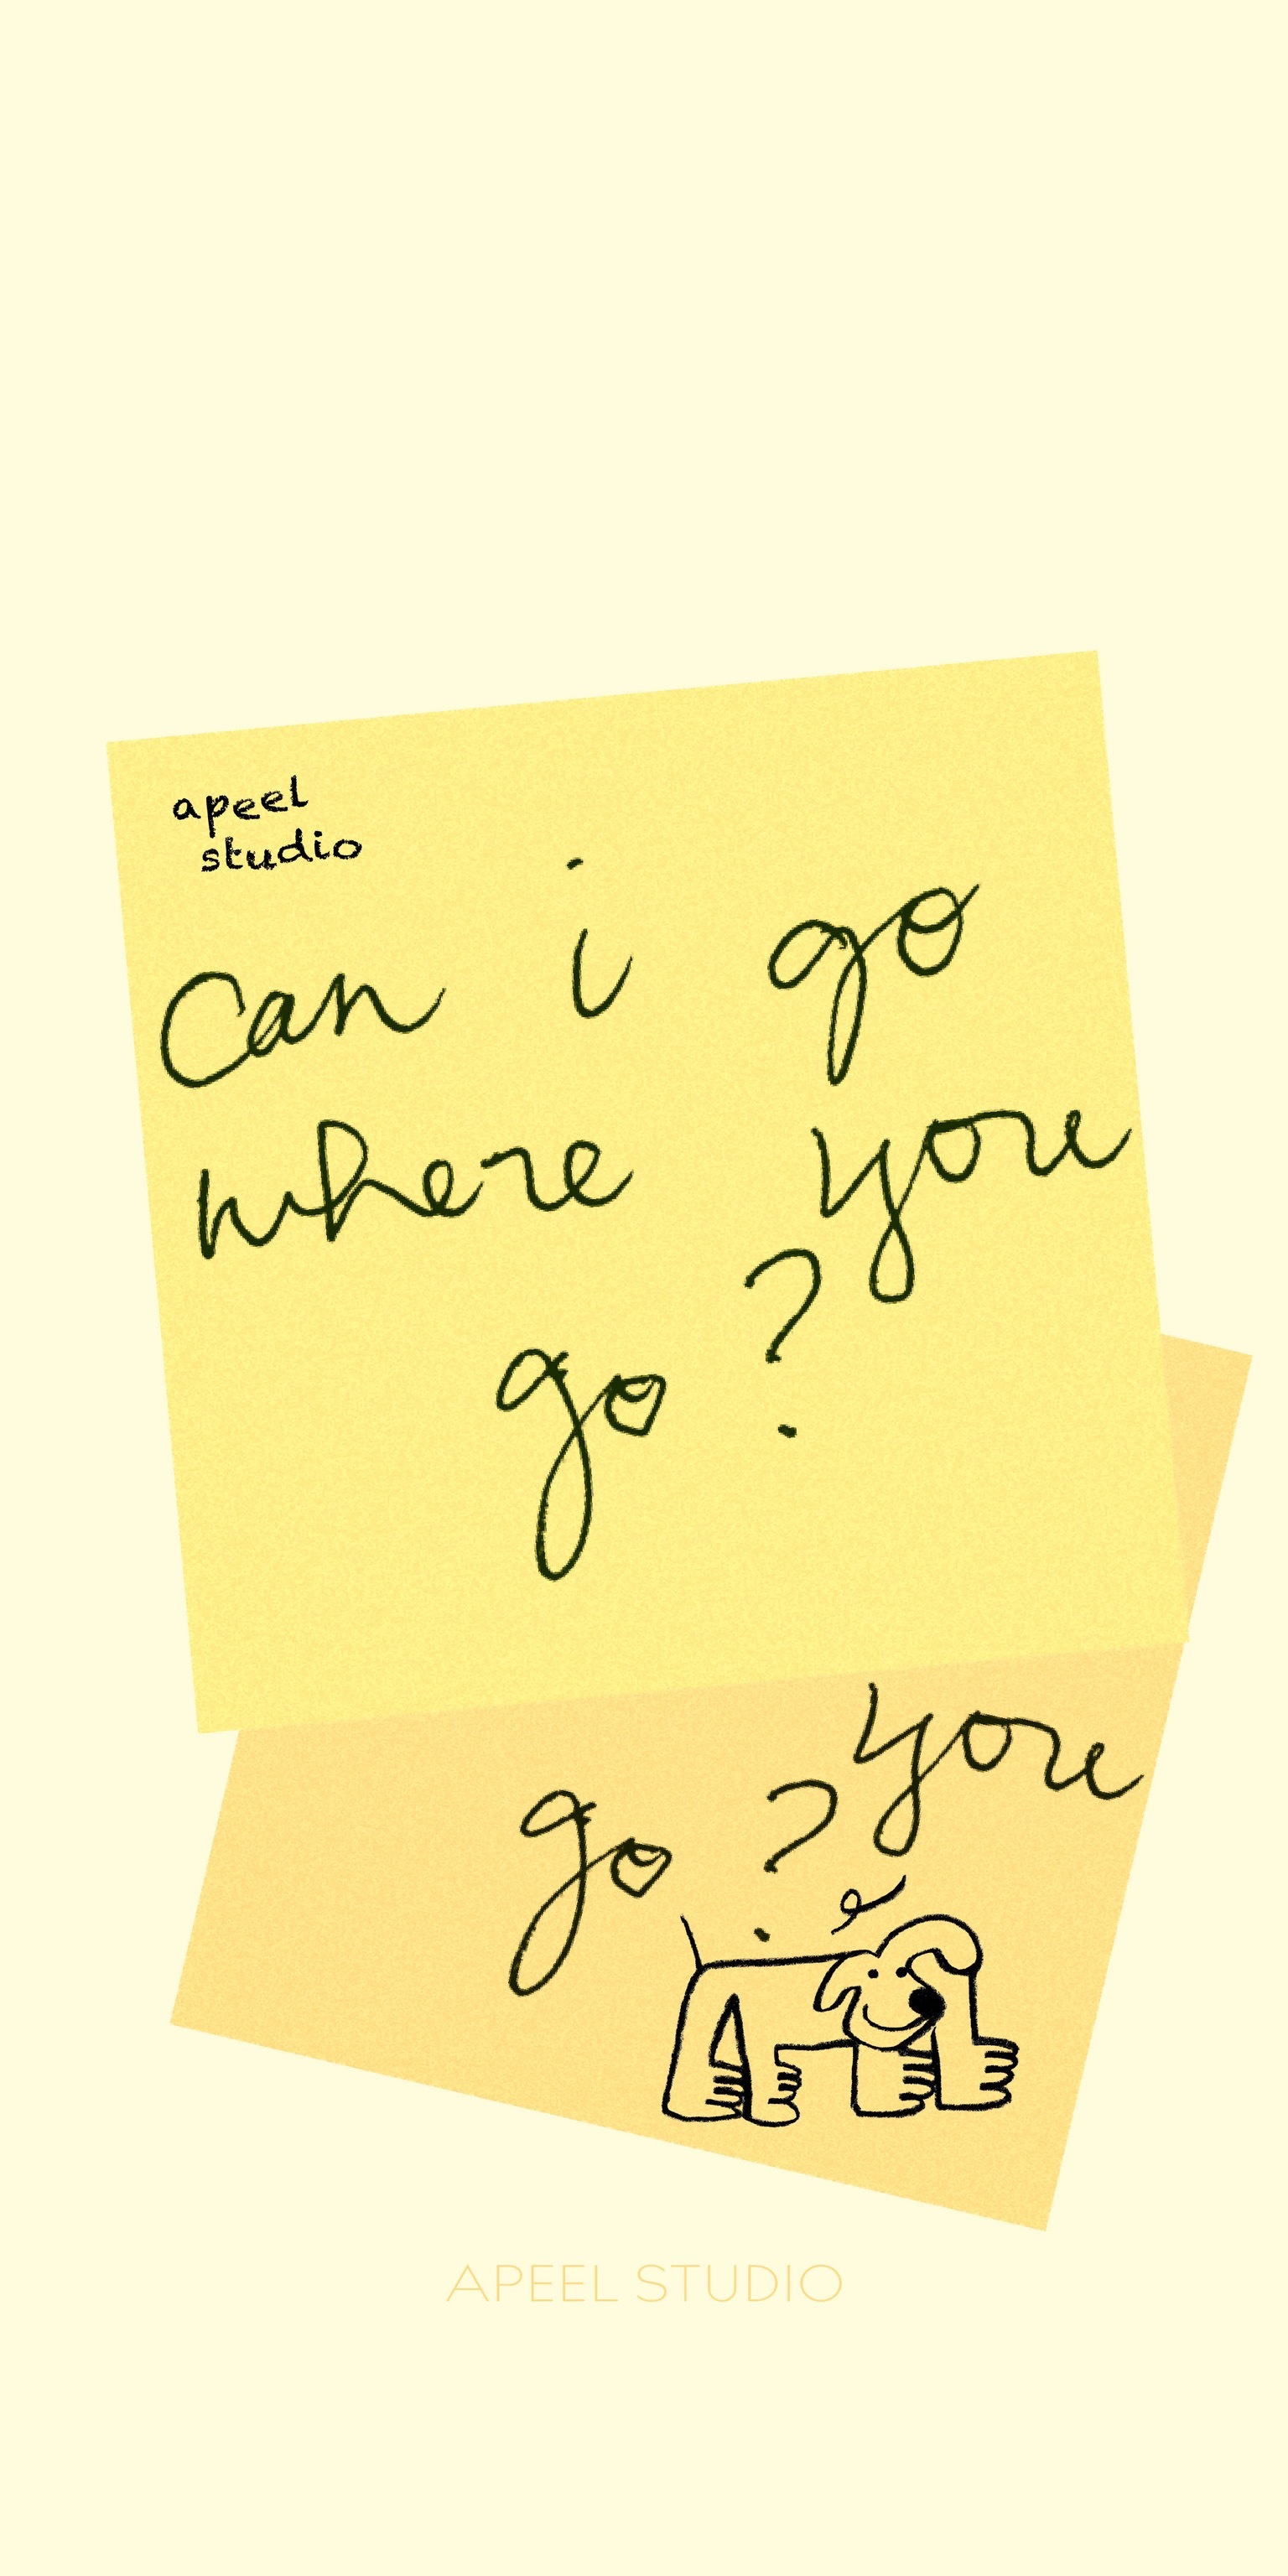 apeel
studio
Can i go
where you
go ?
you
go ?
APEEL STUDIO